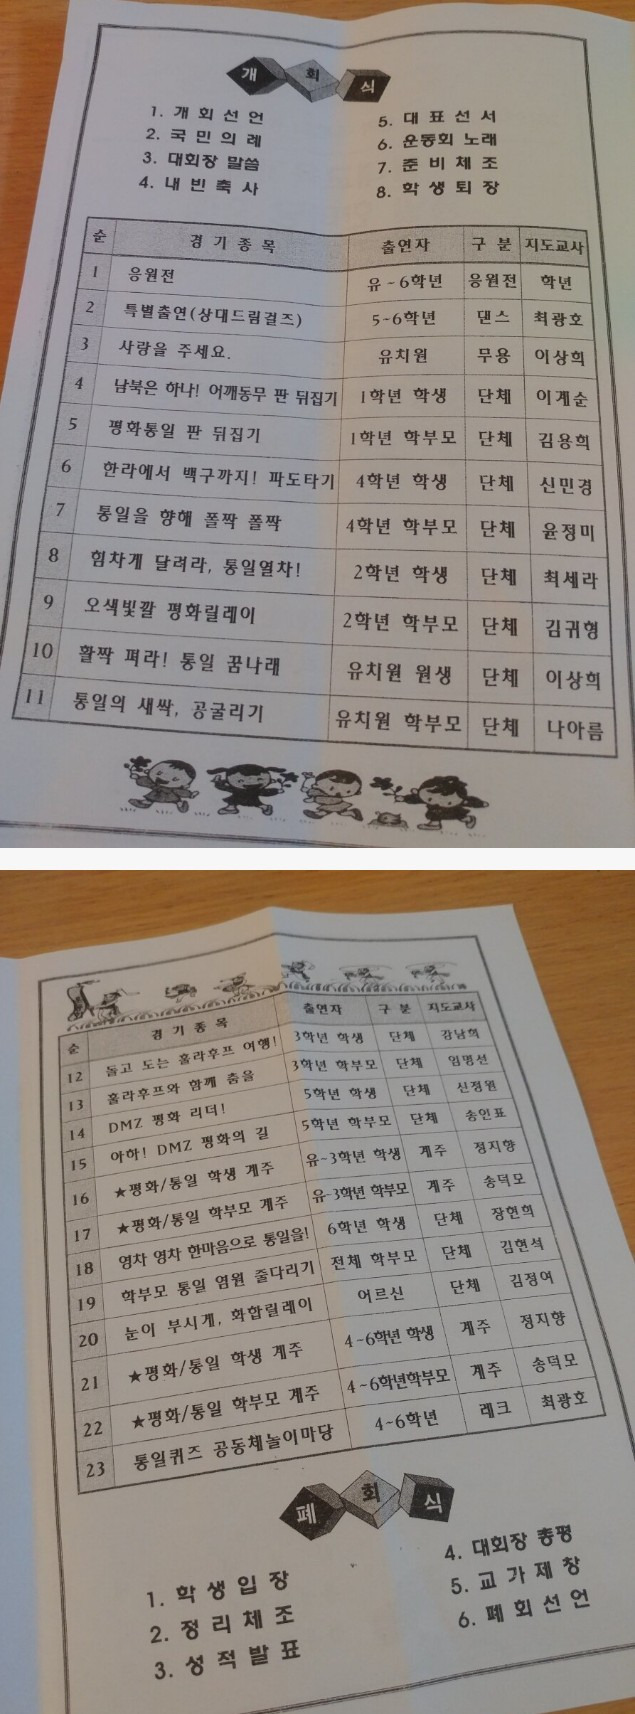 개회식
1. 개회선언
2. 국민의례
3. 대회장 말씀
4. 내빈축사
5. 대표선서
6. 운동회 노래
7. 준비체조
8. 학생퇴장
순 경기종목 출연자 구분 지도교사
1 응원전 유~6학년 응원전 학년
2 특별출연(상대드림걸즈) 5~6학년 댄스 최광호
3 사랑을 주세요. 유치원 무용 이상희
4 남북은 하나! 어깨동무 판 뒤집기 1학년 학생 단체 이계순
5 평화통일 판 뒤집기 1학년 학부모 단체 김용희
6 한라에서 백구까지! 파도타기 4학년 학생 단체 신민경
7 통일을 향해 폴짝 폴짝 4학년 학부모 단체 윤정미
8 힘차게 달려라, 통일열차! 2학년 학생 단체 최세라
9 오색빛깔 평화릴레이 2학년 학부모 단체 김귀형
10 활짝 펴라! 통일 꿈나래 유치원 원생 단체 이상희
11 통일의 새싹, 공굴리기 유치원 학부모 단체 나아름
순 경기종목 출연자 구분 지도교사
12 돌고 도는 훌라후프 여행! 3학년 학생 단체 강남희
13 훌라후프와 함께 춤을 3학년 학부모 단체 임명선
14 DMZ 평화 리더! 5학년 학생 단체 신정원
15 아하! DMZ 평화의 길 5학년 학부모 단체 송인표
16 ★평화/통일 학생 계주 유~3학년 학생 계주 정지향
17 ★평화/통일 학부모 계주 유~3학년 학부모 계주 송덕모
18 영차 영차 한마음으로 통일을! 6학년 학생 단체 장현희
19 학부모 통일 염원 줄다리기 전체 학부모 단체 김현석
20 눈이 부시게, 화합릴레이 어르신 단체 김정여
21 ★평화/통일 학생 계주 4~6학년 학생 계주 정지향
22 ★평화/통일 학부모 계주 4~6학년학부모 계주 송덕모
23 통일퀴즈 공동체놀이마당 4~6학년 레크 최광호
폐회식
1. 학생입장
2. 정리체조
3. 성적발표
4. 대회장 총평
5. 교가제창
6. 폐회선언